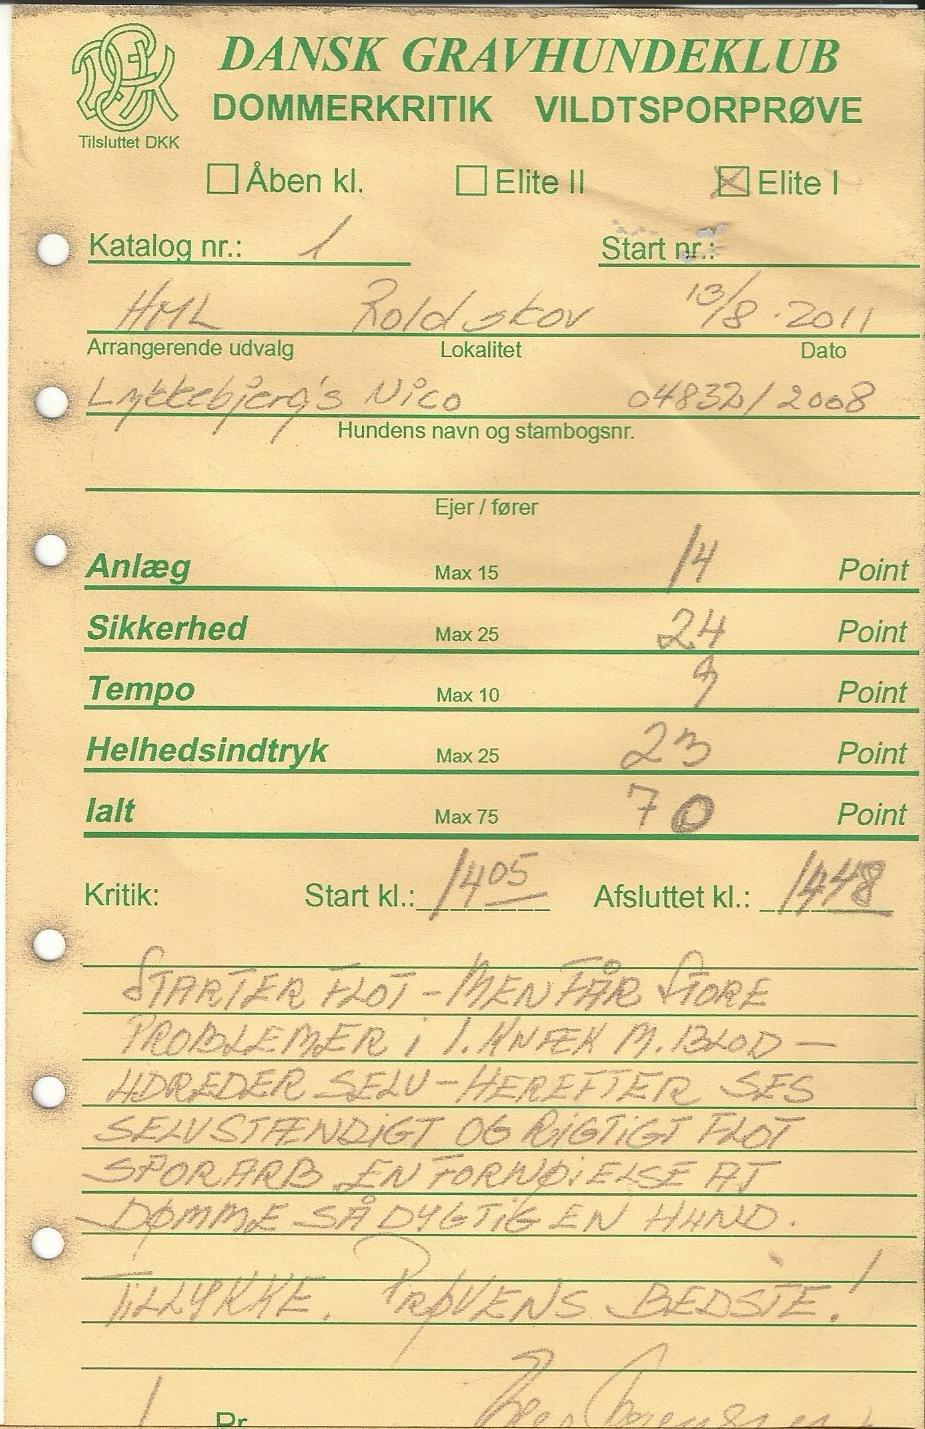 DANSK GRAVHUNDEKLUB
DOMMERKRITIK VILDTSPORPRØVE
Tilsluttet DKK
Åben kl. Elite II Elite I
Katalog nr.: 1 Start nr.:
HML Rold skov 13/8.2011
Arrangerende udvalg Lokalitet Dato
Lykkebjerg's Nico 04832/2008
Hundens navn og stambogsnr.
Ejer / fører
Anlæg Max 15 14 Point
Sikkerhed Max 25 24 Point
Tempo Max 10 9 Point
Helhedsindtryk Max 25 23 Point
Ialt Max 75 70 Point
Kritik: Start kl.: 1405 Afsluttet kl.: 1448
STARTER FLOT - MEN FÅR STORE
PROBLEMER i 1. KNÆK M. BLOD -
UDREDER SELV - HEREFTER SES
SELVSTÆNDIGT OG RIGTIGT FLOT
SPORARB. EN FORNØIELSE AT
DØMME SÅ DYGTIG EN HUND.
TILLYKKE. PRØVENS BEDSTE!
1 Pr